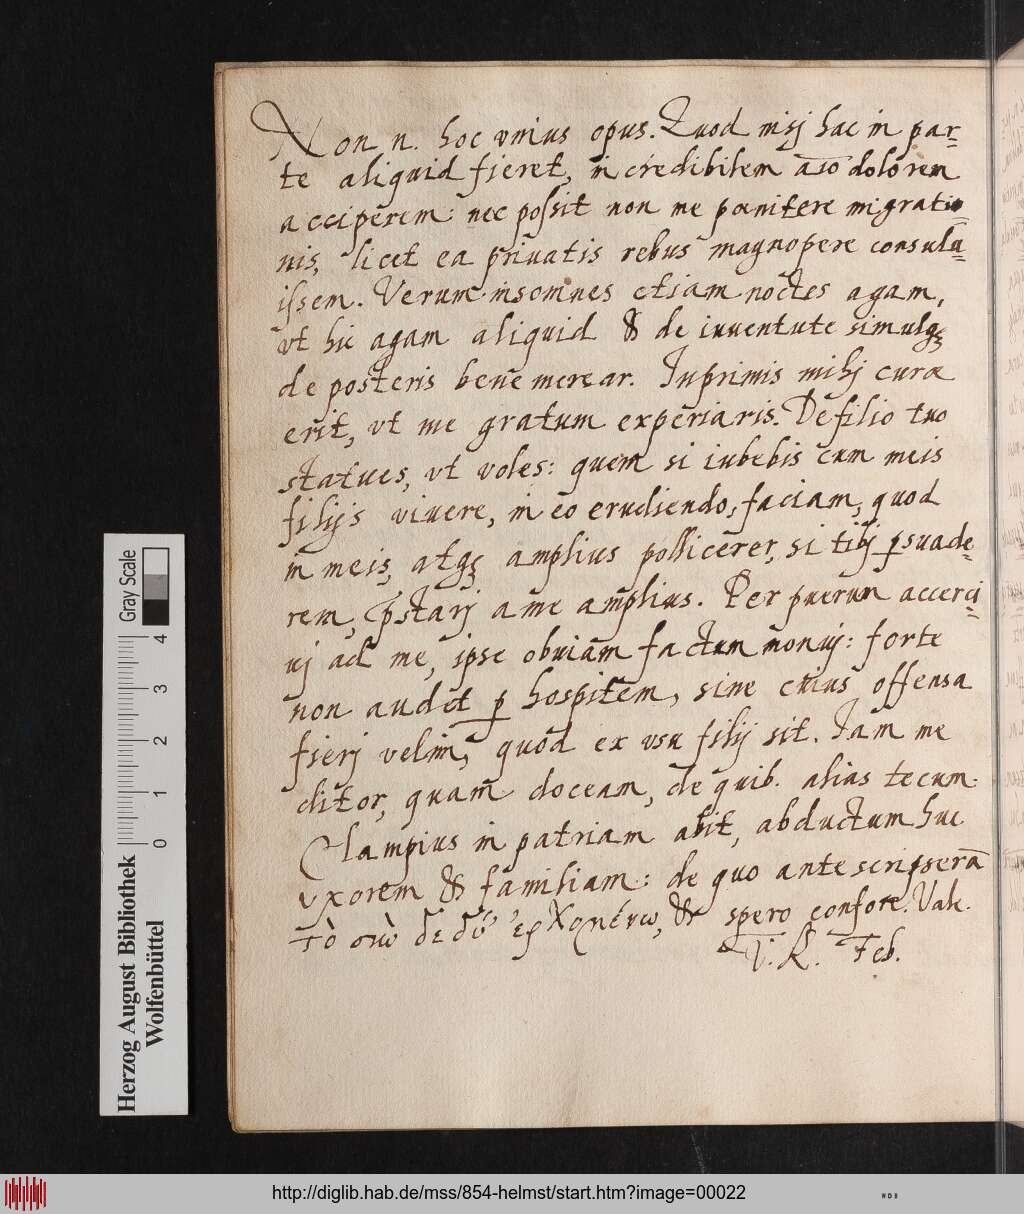 Non n. hoc vnius opus. Quod nisj hac in par=
te aliquid fieret, incredibilem aīo dolorem
acciperem: nec possit non me pœnitere migratio=
nis, licet ea priuatis rebus magnopere consulu=
issem. Verum insomnes etiam noctes agam,
vt hic agam aliquid & de iuuentute simulqȝ
de posteris bene merear. Inprimis mihj curæ
erit, vt me gratum experiaris. De filio tuo
statues, vt voles: quem si iubebis cum meis
filijs viuere, in eo erudiendo, faciam, quod
in meis, atqȝ amplius pollicerer, si tibj ꝑsuade=
rem, p̄starj a me amplius. Per puerum accerci=
uj ad me, ipse obuiam factum monuj: forte
non audet ꝑ hospitem, sine cuius offensa
fierj velim, quod ex vsu filij sit. Iam me
ditor, quam doceam, de quib. alias tecum.
Clampius in patriam abit, abducturum huc
vxorem & familiam: de quo ante scripserā
τὸ
& spero confore. Vale.
V. K. Feb.
Herzog August Bibliothek
Wolfenbüttel
Gray Scale
0 1 2 3 4
http://diglib.hab.de/mss/854-helmst/start.htm?image=00022
WDB